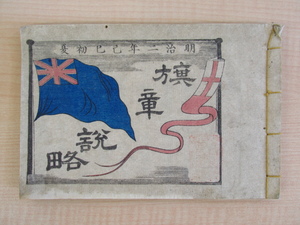 明治二年己巳初夏
旗章
説略